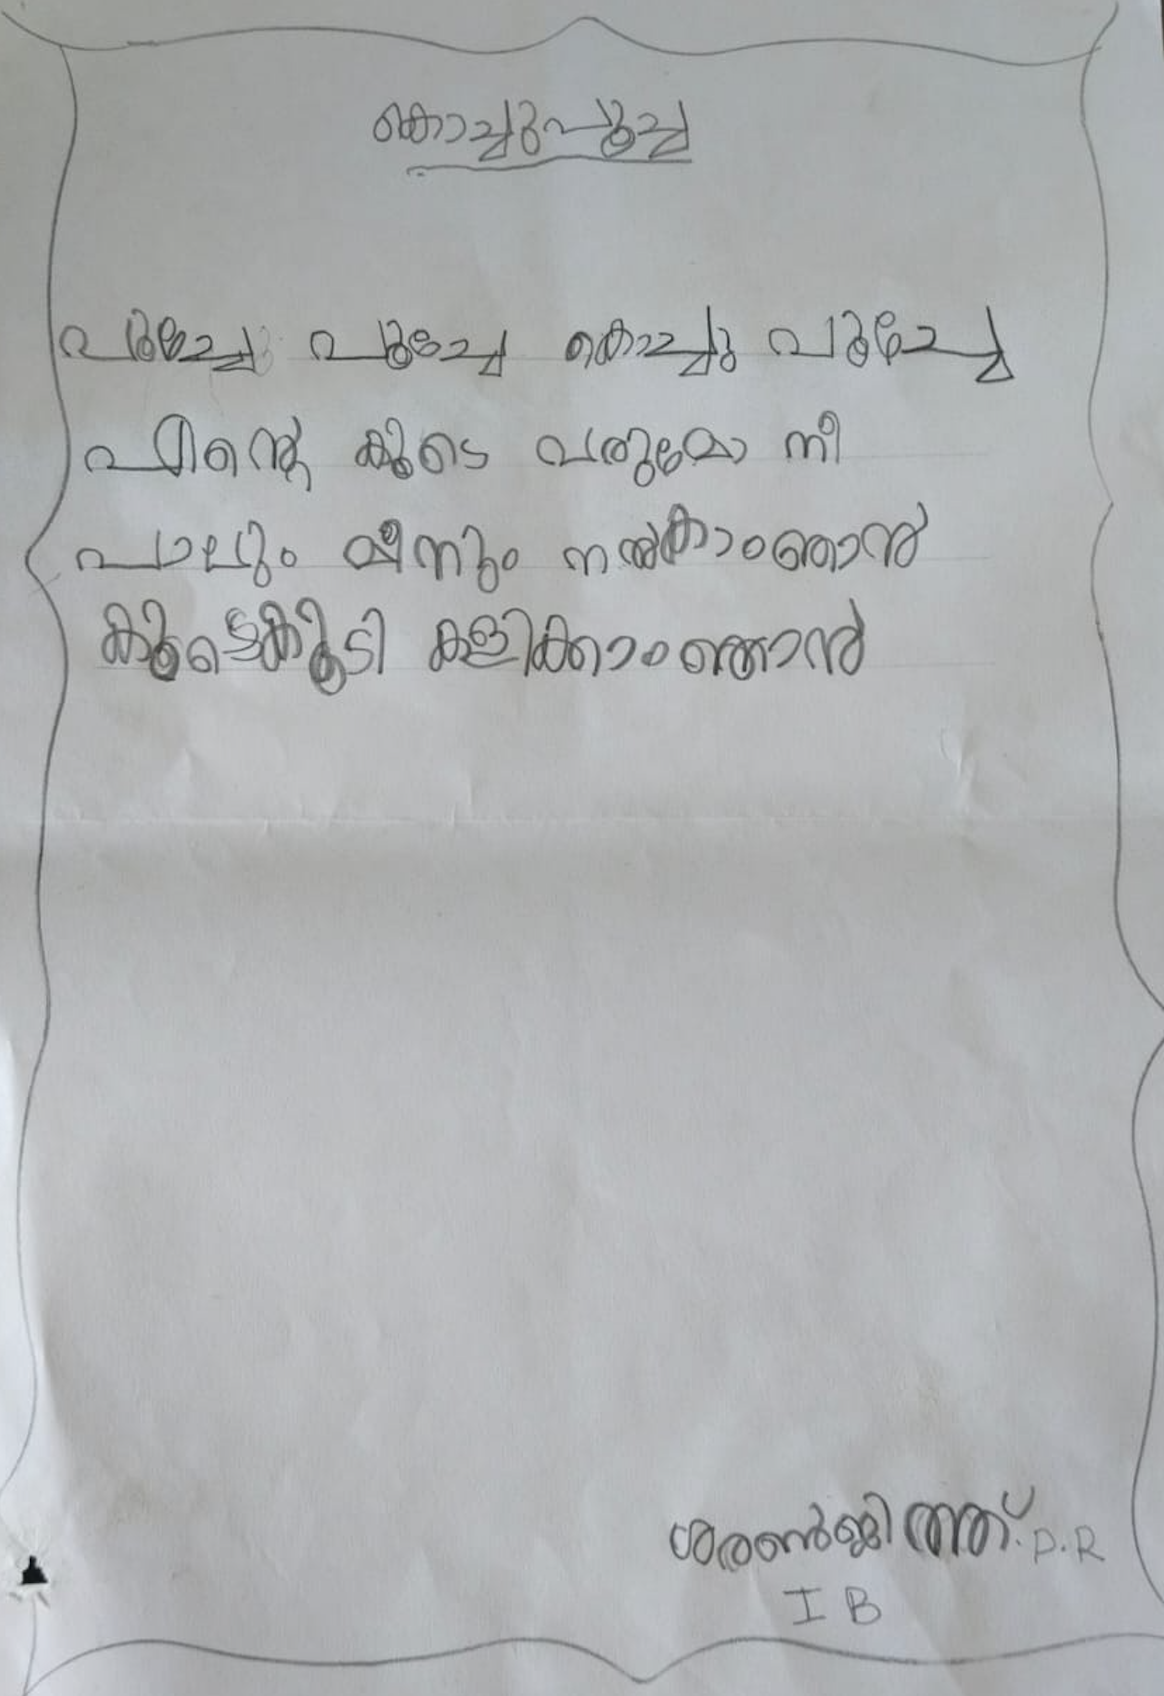 കൊച്ചുപൂച്ച
പൂച്ചേ പൂച്ചേ കൊച്ചു പൂച്ചേ
എന്റെ കൂടെ വരുമോ നീ
പാലും മീനും നൽകാംഞാൻ
കൂട്ടുകൂടി കളിക്കാംഞാൻ
ശരൺജിത്ത്.P.R
I B